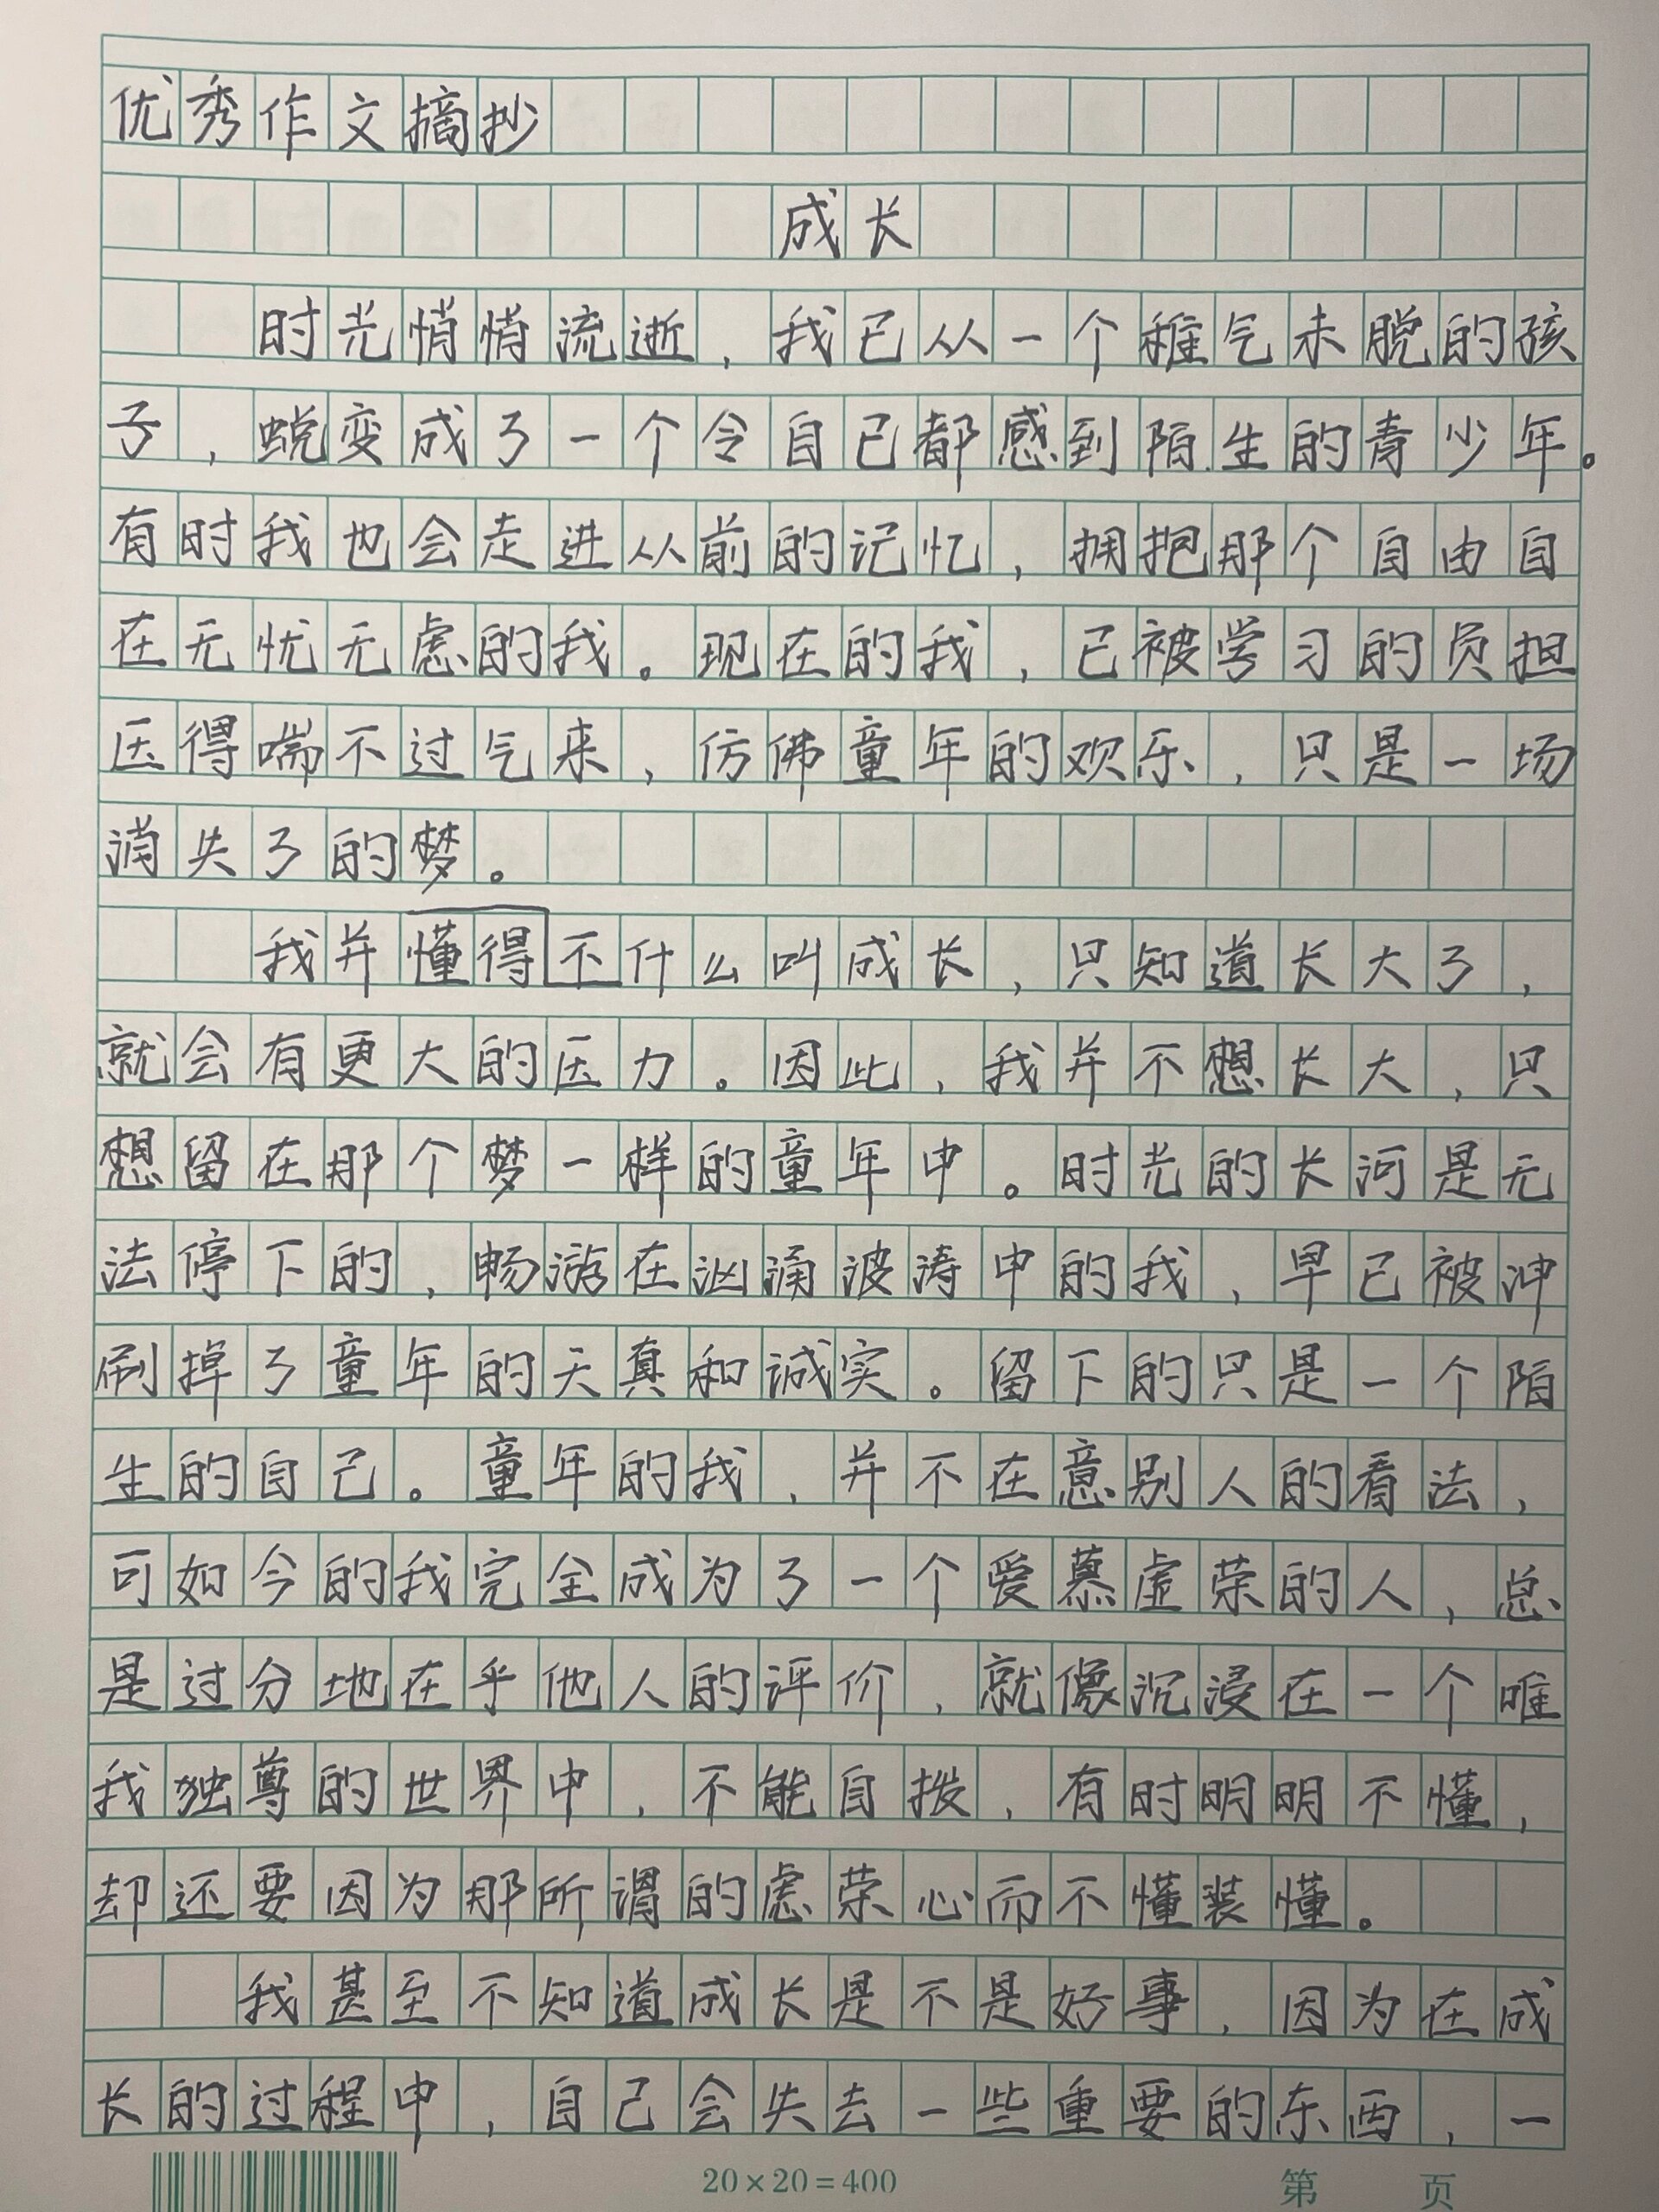 优秀作文摘抄
成长
时光悄悄流逝，我已从一个稚气未脱的孩
子，蜕变成了一个令自己都感到陌生的青少年。
有时我也会走进从前的记忆，拥抱那个自由自
在无忧无虑的我。现在的我，已被学习的负担
压得喘不过气来，仿佛童年的欢乐，只是一场
消失了的梦。
我并懂得不什么叫成长，只知道长大了，
就会有更大的压力。因此，我并不想长大，只
想留在那个梦一样的童年中。时光的长河是无
法停下的，畅游在汹涌波涛中的我，早已被冲
刷掉了童年的天真和诚实。留下的只是一个陌
生的自己。童年的我，并不在意别人的看法，
可如今的我完全成为了一个爱慕虚荣的人，总
是过分地在乎他人的评价，就像沉浸在一个唯
我独尊的世界中，不能自拨，有时明明不懂，
却还要因为那所谓的虑荣心而不懂装懂。
我甚至不知道成长是不是好事，因为在成
长的过程中，自己会失去一些重要的东西，一
20×20=400
第 页